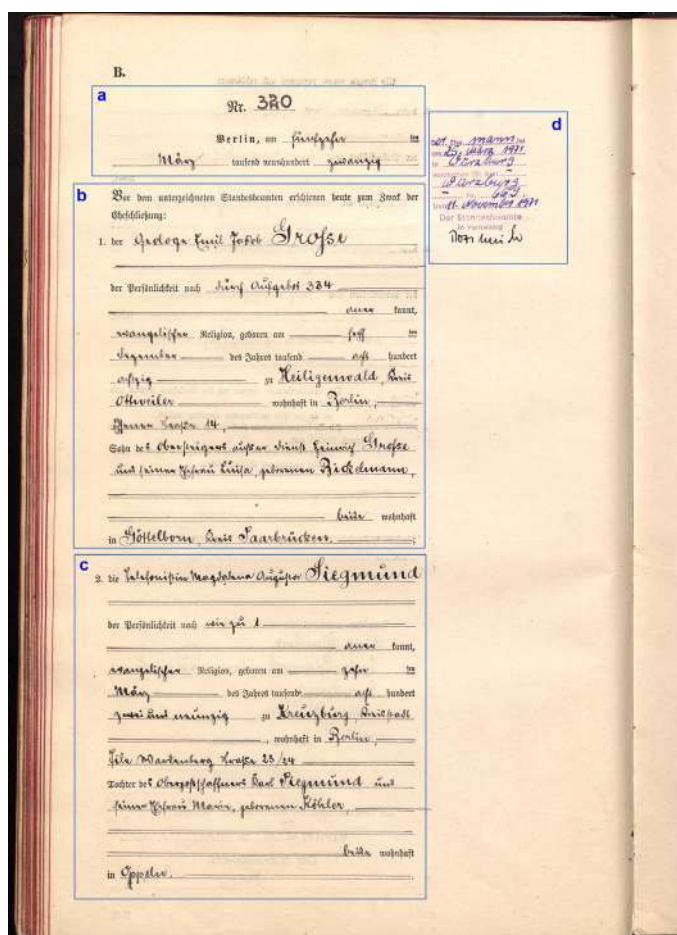 B.
a
Nr. 320
Berlin, am fünfzehn ten
März tausend neunhundert zwanzig
d
mann
25. März 1971
in Würzburg
Würzburg
Nr. 693
11. November 1971
Der Standesbeamte
in Vertretung
b
Vor dem unterzeichneten Standesbeamten erschienen heute zum Zweck der
Eheschließung:
1. der Geologe Emil Jakob Grosse
der Persönlichkeit nach durch Aufgebot 334
aner kannt,
evangelischer Religion, geboren am ten
Dezember des Jahres tausend acht hundert
achtzig zu Heiligenwald, Kreis
Ottweiler wohnhaft in Berlin,
Straße 14,
Sohn des Obersteigers außer Dienst Heinrich Grosse
und seiner Ehefrau Luisa, geborenen Bickelmann,
beide wohnhaft
in Göttelborn, Kreis Saarbrücken.
c
2. die Telefonistin Magdalena Augusta Siegmund
der Persönlichkeit nach wie zu 1
aner kannt,
evangelischer Religion, geboren am zehn ten
März des Jahres tausend acht hundert
zwei und neunzig zu Kreuzburg, Kreisstadt
, wohnhaft in Berlin,
Wartenberg Straße 23/24
Tochter des Oberpostschaffners Karl Siegmund und
seiner Ehefrau Marie, geborenen Köhler,
beide wohnhaft
in Oppeln.